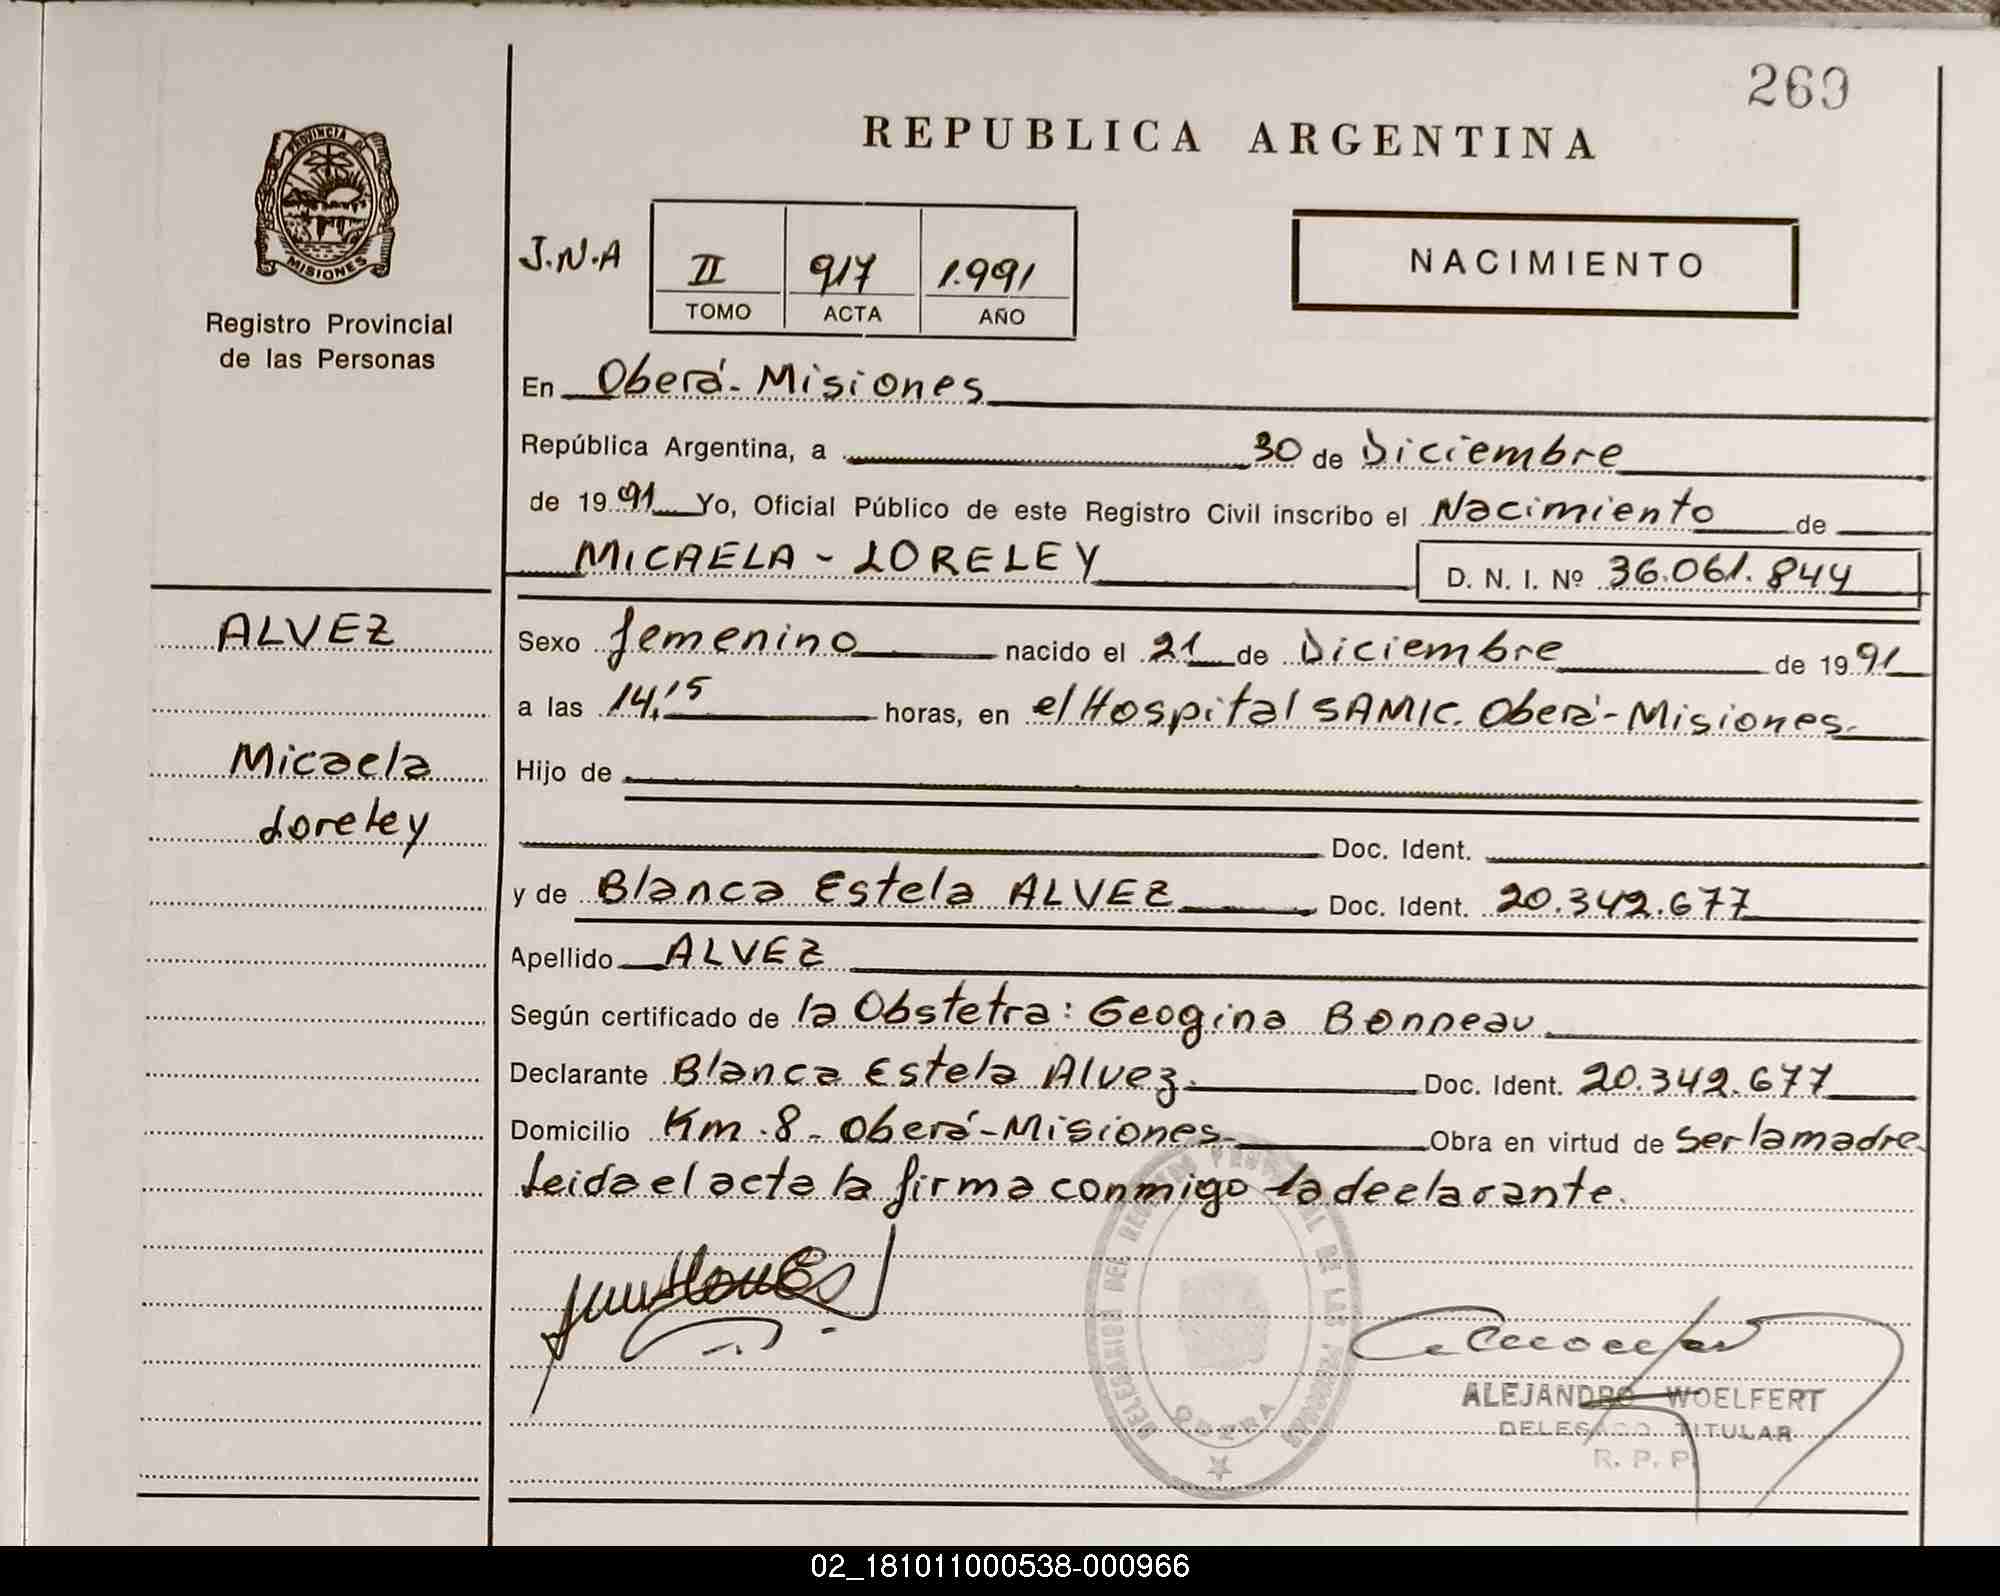 269
REPUBLICA ARGENTINA
PROVINCIA DE
MISIONES
Registro Provincial
de las Personas
J.N.A II 917 1.991
TOMO ACTA AÑO
NACIMIENTO
En Oberá - Misiones
República Argentina, a 30 de Diciembre
de 1991 Yo, Oficial Público de este Registro Civil inscribo el Nacimiento de
MICAELA - LORELEY D. N. I. Nº 36.061.844
ALVEZ
Micaela
Loreley
Sexo femenino nacido el 21 de Diciembre de 1991
a las 14,15 horas, en el Hospital SAMIC. Oberá - Misiones.
Hijo de
Doc. Ident.
y de Blanca Estela ALVEZ Doc. Ident. 20.342.677
Apellido ALVEZ
Según certificado de la Obstetra: Geogina Bonneau
Declarante Blanca Estela Alvez. Doc. Ident. 20.342.677
Domicilio Km. 8 - Oberá - Misiones Obra en virtud de ser la madre.
Leida el acta la firma conmigo la declarante.
DELEGACION DEL REGISTRO PROVINCIAL DE LAS PERSONAS
OBERA
ALEJANDRO WOELFERT
DELEGADO TITULAR
R. P. P.
02_181011000538-000966